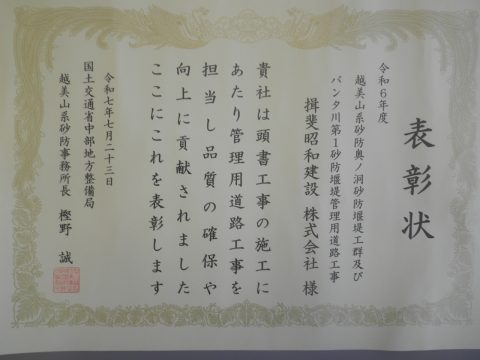 表彰状
令和６年度
越美山系砂防奥ノ洞砂防堰堤工群及び
バンタ川第１砂防堰堤管理用道路工事
揖斐昭和建設 株式会社 様
貴社は頭書工事の施工に
あたり管理用道路工事を
担当し品質の確保や
向上に貢献されました
ここにこれを表彰します
令和七年七月二十三日
国土交通省中部地方整備局
越美山系砂防事務所長 樫野 誠